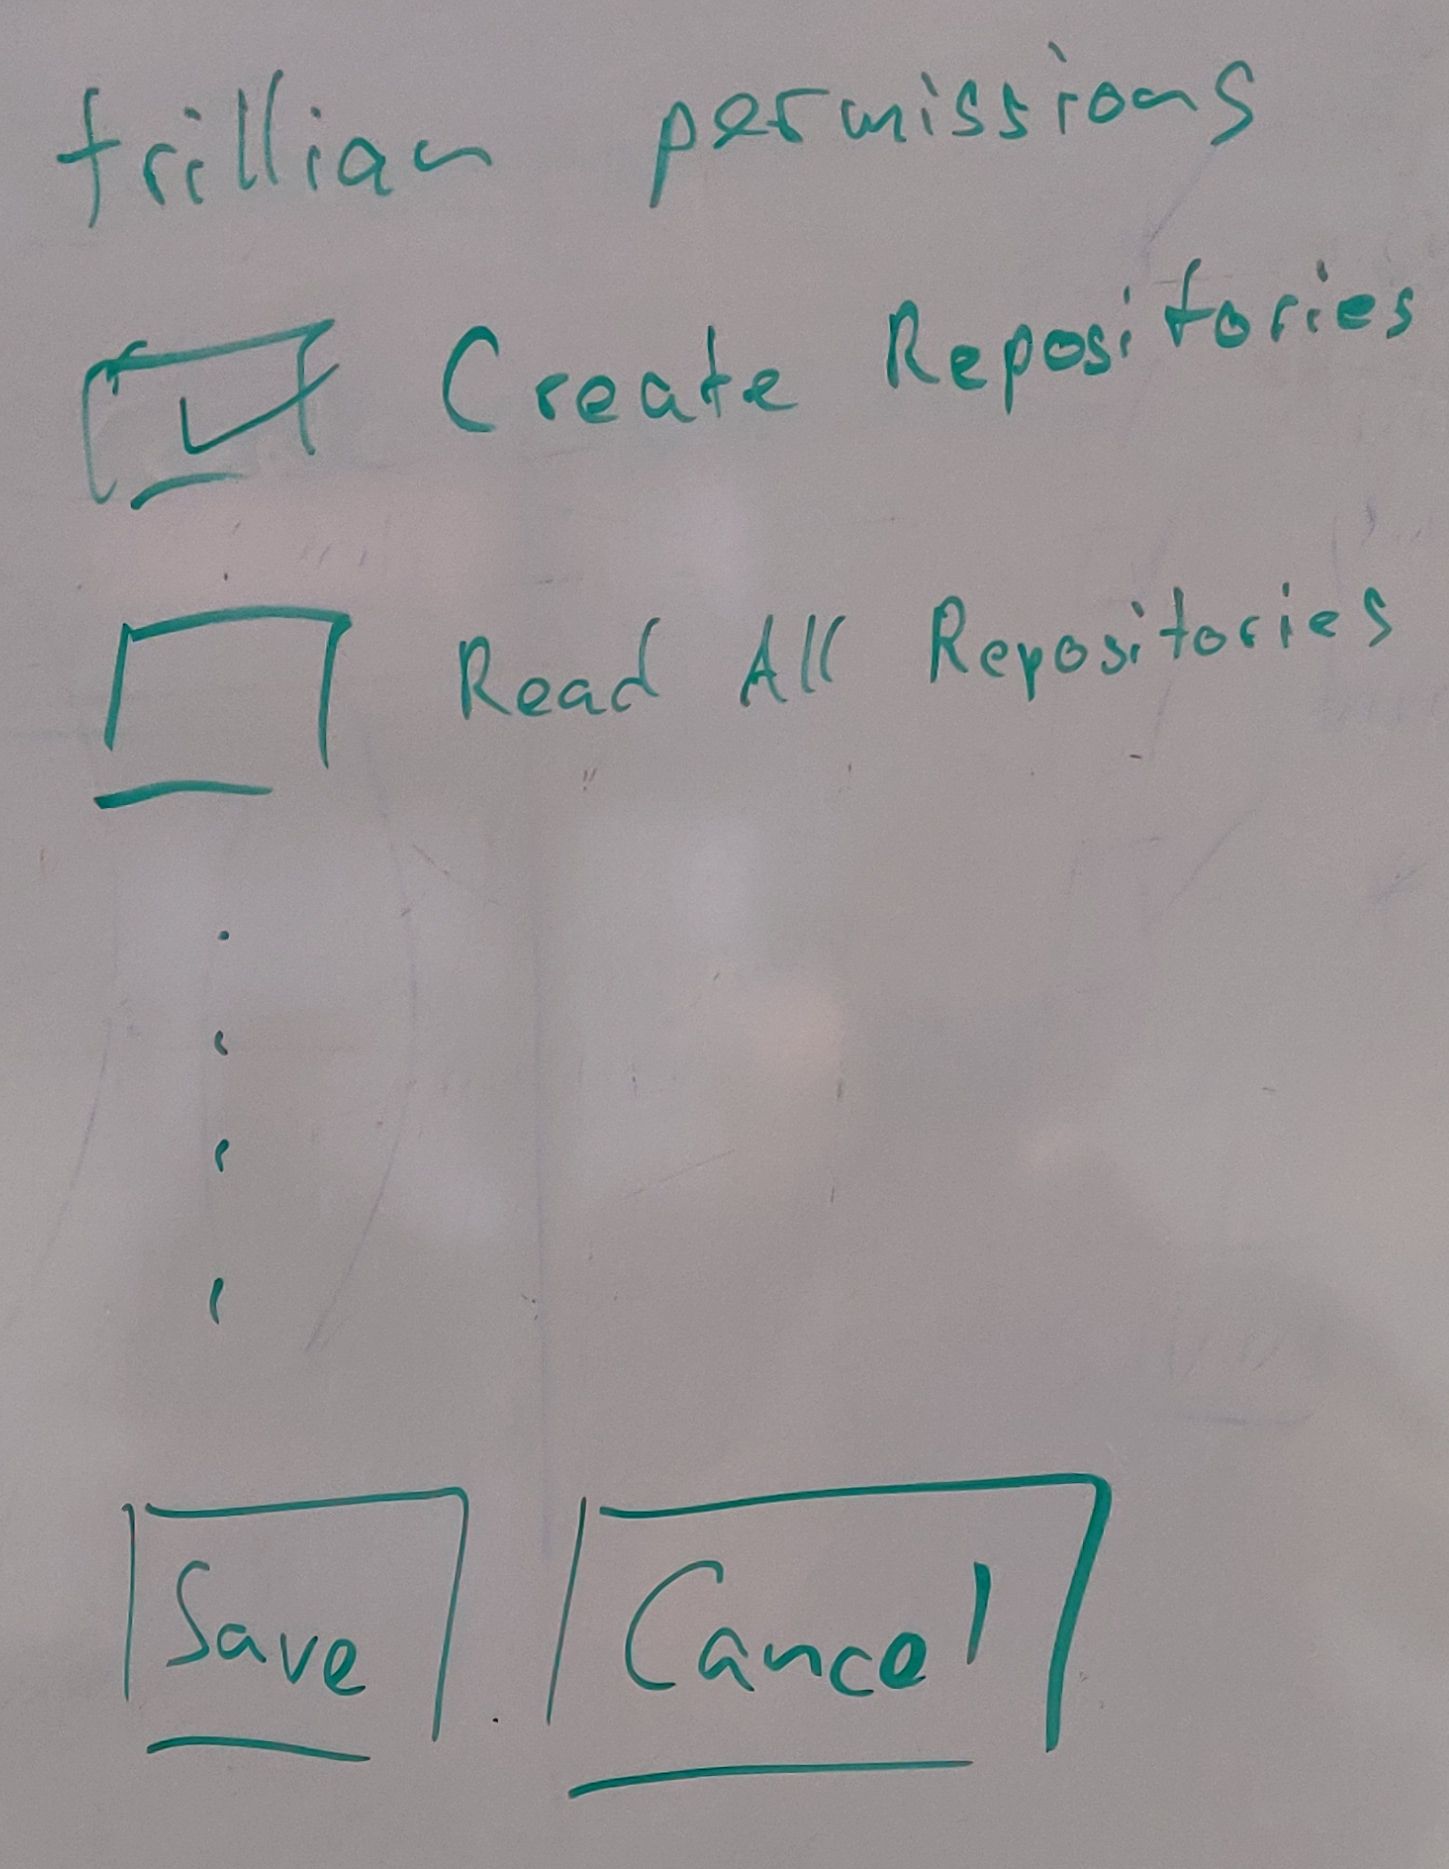 trillian permissions
Create Repositories
Read All Repositories
Save Cancel